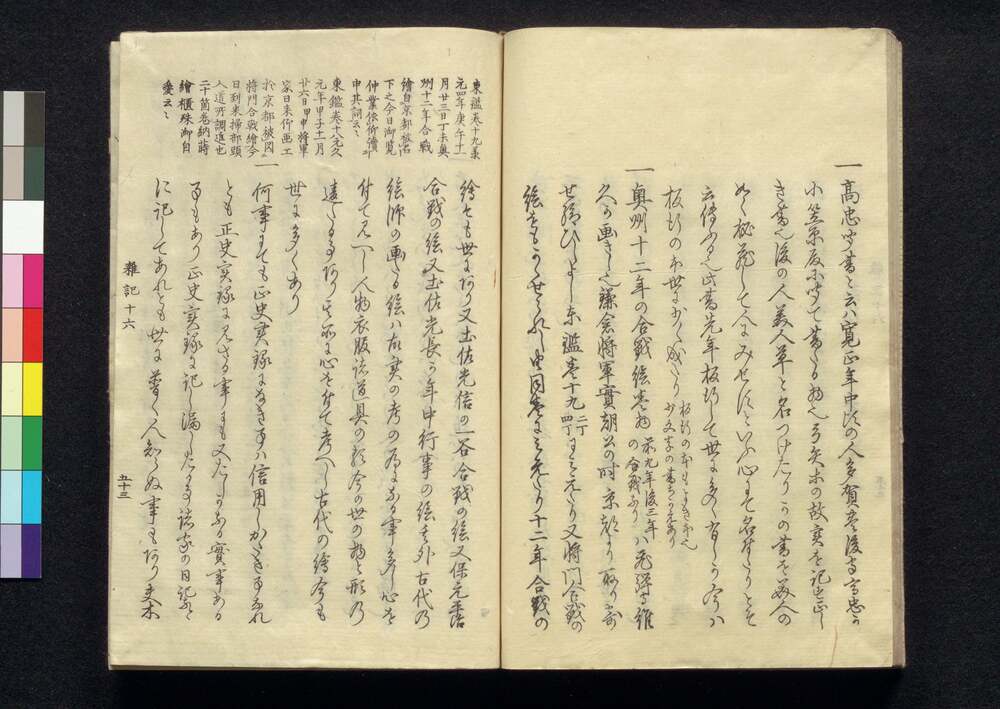 一高忠聞書と云ハ寛正年中頃の人多賀豊後守高忠か
小笠原殿に聞て書たる物也弓矢等の故実を記し正し
き書也後の人美人草と名つけたりかの書を美人の
如く秘蔵して人にみせすといふ心にて名付たりとそ
云傳ふる也此書先年板行して世に多く有しか今ハ
板行の本世に少く成たり
一奥州十二年の合戦絵巻物前九年後三年の合戦なりハ飛騨守惟
久か画きし也鎌倉将軍實朝公の時京都より取り寄
せ給ひしよし東鑑巻十九にみえたり又将門合戦の
絵をもかゝせられし由同書にみえたり十二年合戦の
東鑑巻十九承
元四年庚午十一
月廿三日丁未奥
州十二年合戦
繪自京都被召
下之今日御覧
仲業依仰讀
申其詞云々
東鑑巻十八元久
元年甲子十一月
廿六日甲申将軍
家日来仰画工
於京都被図
将門合戦繪今
日到来掃部頭
入道所調進也
二十箇巻納蒔
繪櫃殊御自
愛云々
繪今も世にあり又土佐光信の一谷合戦の絵又保元平治
合戦の絵又土佐光長か年中行事の絵其外古代の
絵師の画たる絵ハ故実の考の為になる事多し心を
付て見へし人物衣服諸道具の形今の世の物と形の
違たる事あり其所に心を付て考へし古代の繪今も
世に多くあり
一何事にても正史実録になき事ハ信用しかたき事なれ
とも正史実録に見えさる事にも又たしかなる實事ある
事もあり正史実録に記し漏したる事諸家の日記なと
に記してあれとも世に普く人知らぬ事もあり又本
雜記十六
五十三